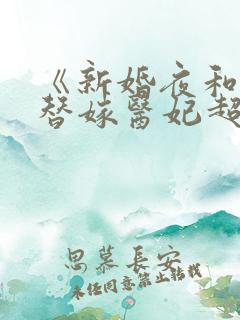 《新婚夜和
替嫁医妃超
思慕長安
未经同意禁止转载